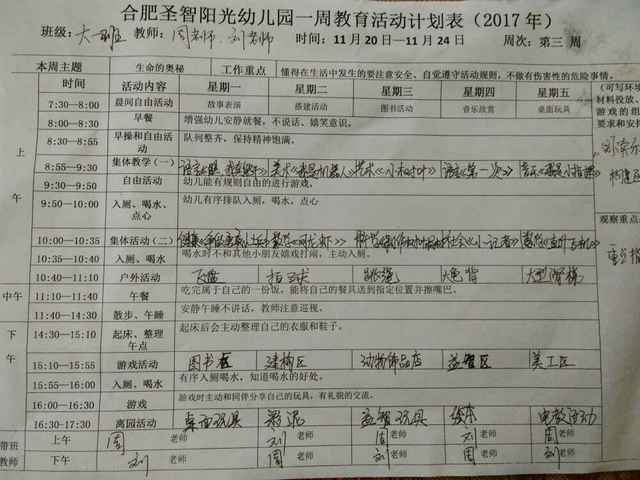 合肥圣智阳光幼儿园一周教育活动计划表（2017年）
班级：大一班 教师：周老师、刘老师 时间：11月20日—11月24日 周次：第三 周
本周主题 生命的奥秘 工作重点 懂得在生活中发生的要注意安全、自觉遵守活动规则，不做有伤害性的危险事情。
时间 活动内容 星期一 星期二 星期三 星期四 星期五
7:30—8:00 晨间自由活动 故事表演 搭建活动 图书活动 音乐欣赏 桌面玩具
8:00—8:30 早餐 增强幼儿安静就餐，不说话、嬉笑意识。
8:30—8:55 早操和自由活动 队列整齐，保持精神饱满。
上午
8:55—9:30 集体教学（一）
9:30—9:50 自由活动 幼儿能有规则自由的进行游戏。
9:50—10:00 入厕、喝水、点心 幼儿有序排队入厕，喝水，点心
10:00—10:35 集体活动（二）
10:35—10:40 入厕、喝水 喝水时不和其他小朋友嬉戏打闹，主动入厕。
10:40—11:10 户外活动 飞盘 拍球 跳绳 大型滑梯
中午 11:10—11:40 午餐 吃完属于自己的一份饭，能将自己的餐具送到指定位置并擦嘴巴。
11:40—14:30 散步、午睡 安静午睡不讲话，教师注意巡视。
下午 14:30—15:10 起床、整理午点 起床后会主动整理自己的衣服和鞋子。
15:10—15:55 游戏活动 图书区 建构区 动物饰品店 益智区 美工区
15:55—16:00 入厕、喝水 有序入厕喝水，知道喝水的好处。
16:00—16:30 游戏 游戏时主动和同伴分享自己的玩具，有礼貌的交流。
16:30-17:30 离园活动 桌面玩具 彩泥 益智玩具 绘本 电教活动
带班教师 上午 周老师 刘老师 周老师 刘老师 周老师
下午 刘老师 周老师 刘老师 周老师 刘老师
（可写环
材料投放、
游戏的组
要求和安
观察重点
重点指